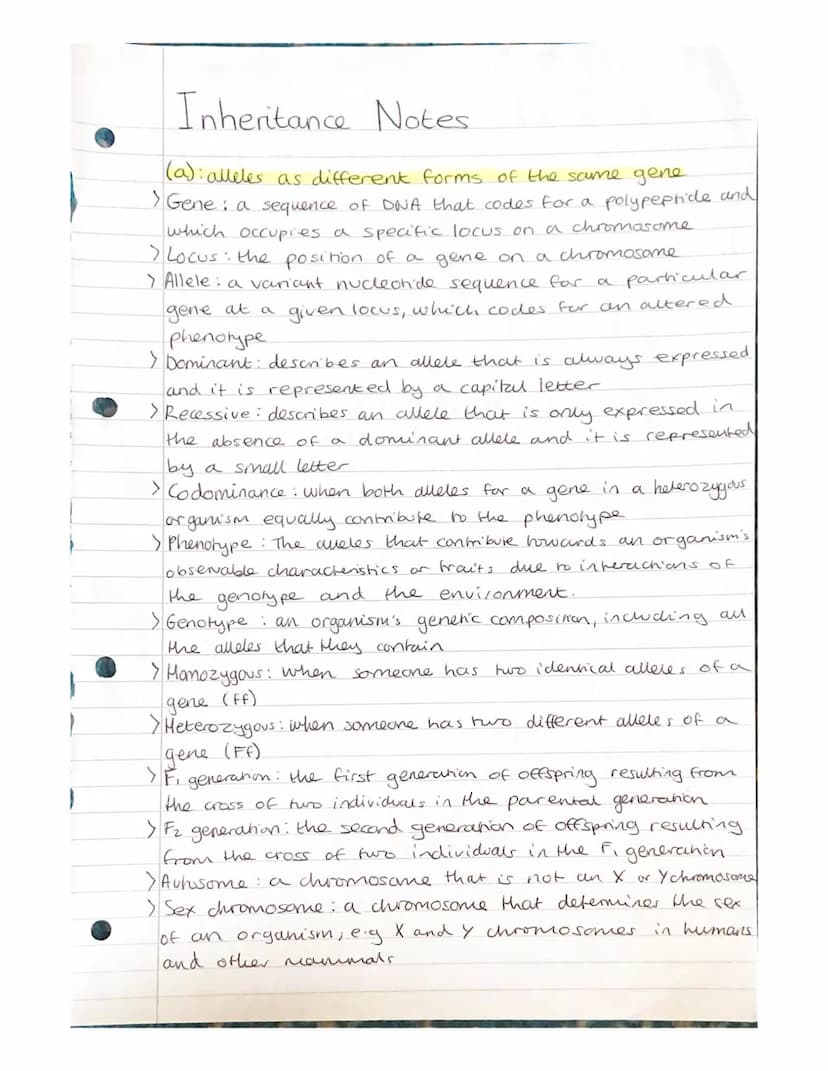 Inheritance Notes
(a): alleles as different forms of the same gene
> Gene: a sequence of DNA that codes for a polypeptide and
which occupies a specific locus on a chromosome
> Locus: the position of a gene on a chromosome
> Allele: a variant nucleotide sequence for a particular
gene at a given locus, which codes for an altered
phenotype
> Dominant: describes an allele that is always expressed
and it is represented by a capital letter
> Recessive: describes an allele that is only expressed in
the absence of a dominant allele and it is represented
by a small letter
> Codominance: when both alleles for a gene in a heterozygous
organism equally contribute to the phenotype
> Phenotype: The alleles that contribute towards an organism's
observable characteristics or traits due to interactions of
the genotype and the environment.
> Genotype: an organism's genetic composition, including all
the alleles that they contain
> Homozygous: when someone has two identical alleles of a
gene (ff)
> Heterozygous: when someone has two different alleles of a
gene (Ff)
> F₁ generation: the first generation of offspring resulting from
the cross of two individuals in the parental generation
> F₂ generation: the second generation of offspring resulting
from the cross of two individuals in the F₁ generation
> Autosome: a chromosome that is not an X or Y chromosome
> Sex chromosome: a chromosome that determines the sex
of an organism, e.g X and Y chromosomes in humans
and other mammals